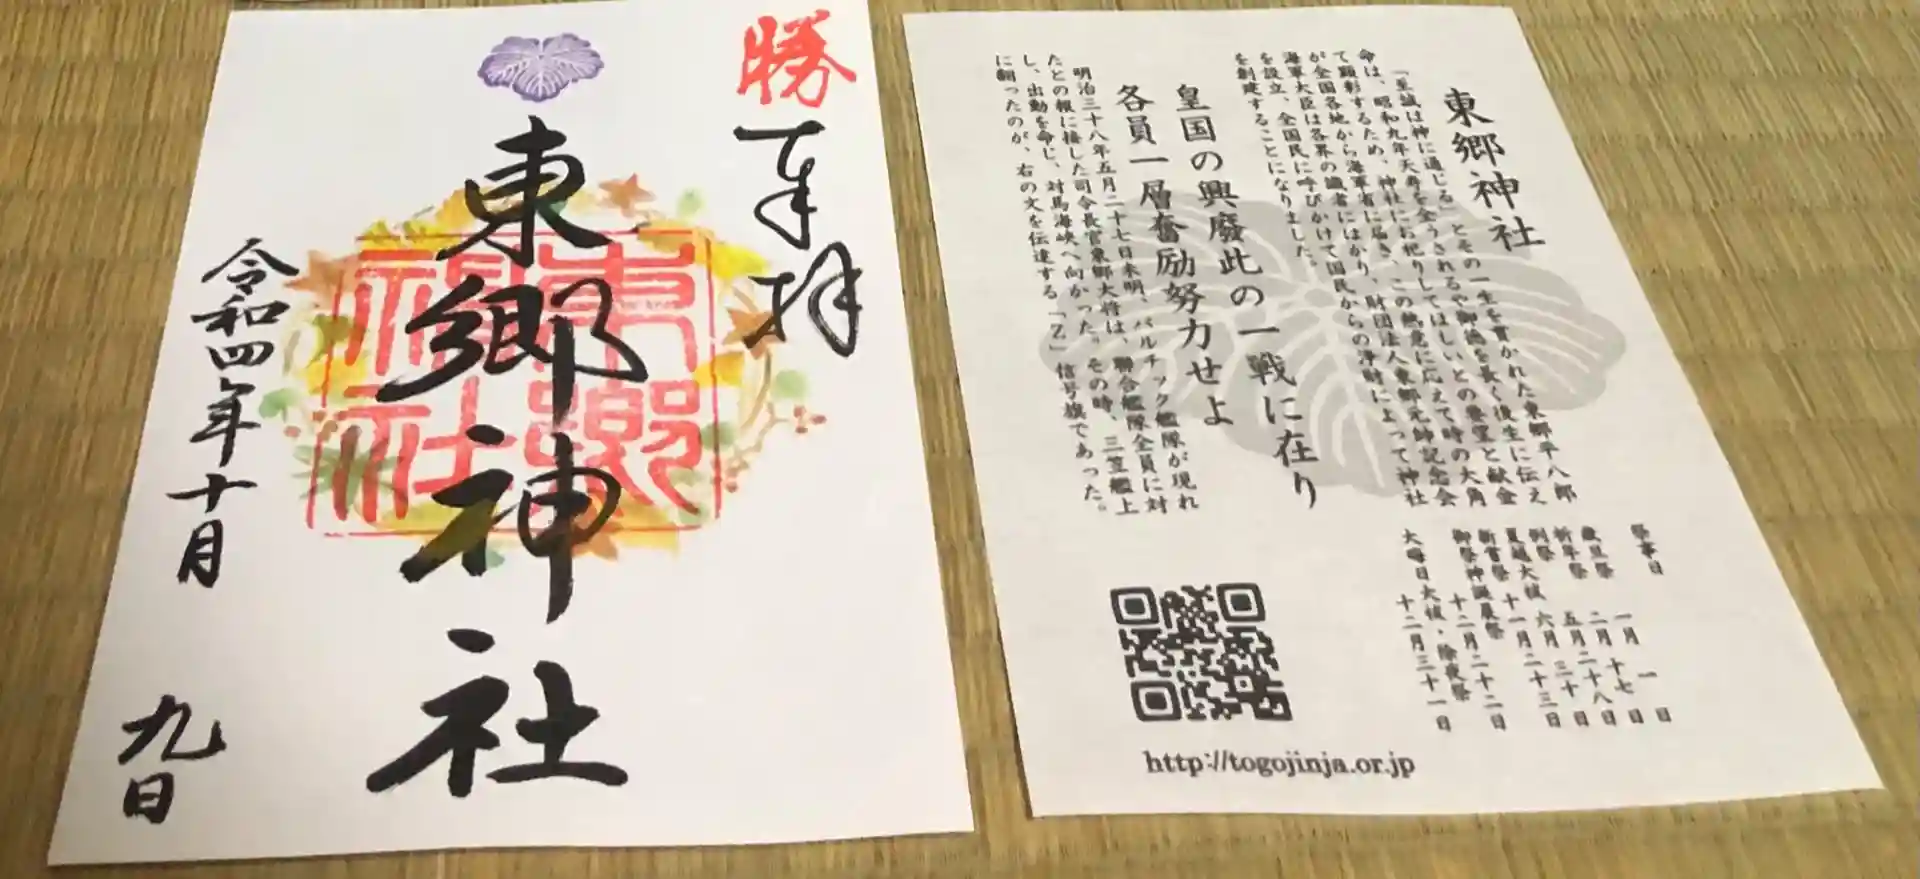 勝
奉拝
東郷神社
東郷神社
令和四年十月 九日
東郷神社
「至誠は神に通じる」とその一生を貫かれた東郷平八郎
命は、昭和九年天寿を全うされるや御徳を長く後生に伝え
て顕彰するため、神社にお祀りしてほしいとの要望と献金
が全国各地から海軍省に届き、この熱意に応えて時の大角
海軍大臣は各界の識者にはかり、財団法人東郷元帥記念会
を設立、全国民に呼びかけて国民からの浄財によって神社
を創建することになりました。
皇国の興廃此の一戦に在り
各員一層奮励努力せよ
明治三十八年五月二十七日未明、バルチック艦隊が現れ
たとの報に接した司令長官東郷大将は、聯合艦隊全員に対
し、出動を命じ、対馬海峡へ向かった。その時、三笠艦上
に翻ったのが、右の文を伝達する「Z」信号旗であった。
祭事日
歳旦祭 一月 一日
祈年祭 二月 十七日
例祭 五月二十八日
夏越大祓 六月 三十日
新嘗祭 十一月二十三日
御祭神誕辰祭 十二月二十二日
大晦日大祓・除夜祭 十二月三十一日
http://togojinja.or.jp